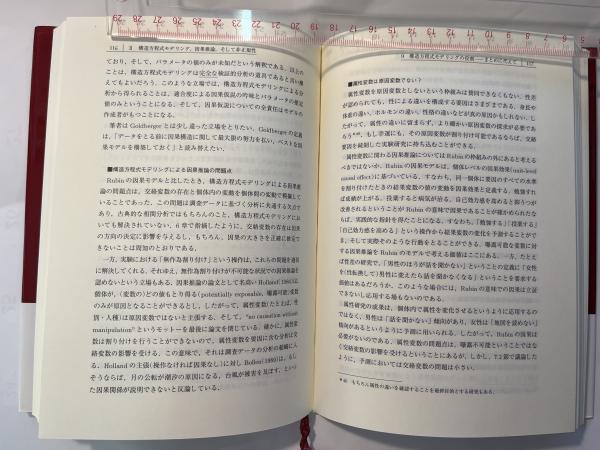 116 II 構造方程式モデリング，因果推論，そして非正規性
ており，そして，パラメータの値のみが未知だという解釈である．以上の
ことは，構造方程式モデリングは完全な検証的分析の道具であると言い換
えてもよいだろう．このような立場では，構造方程式モデリングによる分
析から得られることは，適合度による因果仮説の吟味とパラメータの推定
値のみということになる．そして，因果仮説についての全責任はモデルの
作成者がもつことになる．
筆者は Goldberger とは少し違った立場をとりたい．Goldberger の定義
は，「データをとる前に因果構造に関して最大限の努力を払い，ベストな因
果モデルを構築しておく」と読み替えたい．
■構造方程式モデリングによる因果推論の問題点
Rubin の因果モデルと比したとき，構造方程式モデリングによる因果推
論の問題点は，交絡変数の存在と個体内の変動を個体間の変動で解釈して
いることであった．この問題は調査データに基づく分析に共通する欠点で
あり，古典的な相関分析ではもちろんのこと，構造方程式モデリングにお
いても解決されていない．6 章で指摘したように，交絡変数の存在は因果
の方向の決定に影響を与えるし，もちろん，因果の大きさを正確に推定で
きないことは周知のとおりである．
一方，実験における「無作為割り付け」という操作は，これらの問題を適切
に解決してくれる．それゆえ，無作為割り付けが不可能な状況での因果推論を
認めないという立場もある．因果推論の論文として名高い Holland (1986) は，
個体が，(変数の)どの値もとり得る (potentially exposable，曝露可能)変数
のみが原因となることができるとし，したがって，属性変数(たとえば，性
質・人種)は原因変数ではないと主張する．そして，"no causation without
manipulation" というモットーを最後に論文を閉じている．確かに，属性変
数は割り付けを行うことができないので，属性変数を要因に含む分析は交
絡変数の影響を受ける．この意味で，それは調査データの分析の範疇に入
る．Holland の主張(操作なければ因果なし)に対し Bollen (1989) は，もし
そうならば，月の公転が潮汐の原因になる，台風が被害を及ぼす，といっ
た因果関係が説明できないと反論している．
9 構造方程式モデリングの役割
■属性変数は原因変数でない？
属性変数を原因変数としないという枠組みは賛同できなくもない．性差
が認められても，性による違いを構成する要因はさまざまである．身長や
体重の違い，ホルモンの違い，性格の違いなどが真の原因かもしれない．し
たがって，属性の違いに留まらず，より細かい原因変数の探求が必要であ
ろう*40．もし幸運にも，その原因変数が割り付け可能であるならば，交絡
要因を統制した実験研究に持ち込むことができる．
属性変数に関わる因果推論については Rubin の枠組みの外にあると考える
べきではないか．Rubin の因果モデルは，個体レベルの因果効果 (unit-level
causal effect) に基づいている．すなわち，同一個体に要因のすべての水準
を割り付けたときの結果変数の値の変動を因果効果と定義する．勉強すれ
ば成績が上がる，投薬すると病気が治る，自己効力感を高めると鬱(うつ)が
改善されるということが Rubin の意味で因果であることが確かめられたな
らば，実践的な指針を得たことになる．すなわち，「勉強する」「投薬する」
「自己効力感を高める」という操作から結果変数の変化を予測することがで
き，そして実際そのような行動をとることができる．曝露可能な変数に対
する因果推論を Rubin のモデルで考える価値はここにある．一方，たとえ
ば性差の研究で，「男性のほうが話を聞かない」ということの定義に「女性
を(性転換して)男性に変えたら話を聞かなくなる」ということを要求する
価値はあるだろうか．このような場合には，Rubin の意味での因果は立証
できないし応用する場もないのである．
属性研究の成果は，個体内で属性を変化させるというように応用するの
ではなく，男性は「話を聞かない」傾向があり，女性は「地図を読めない」
傾向があるというように予測に用いられる．したがって，Rubin の因果は
必要ないのである．属性変数の問題点は，曝露不可能ということではな
く交絡変数の影響を受けるということにあるが，しかし，7.2 節で議論した
ように，予測においては交絡変数の問題は小さい．
*40 もちろん属性の違いを確認することを最終目的とする研究もある．